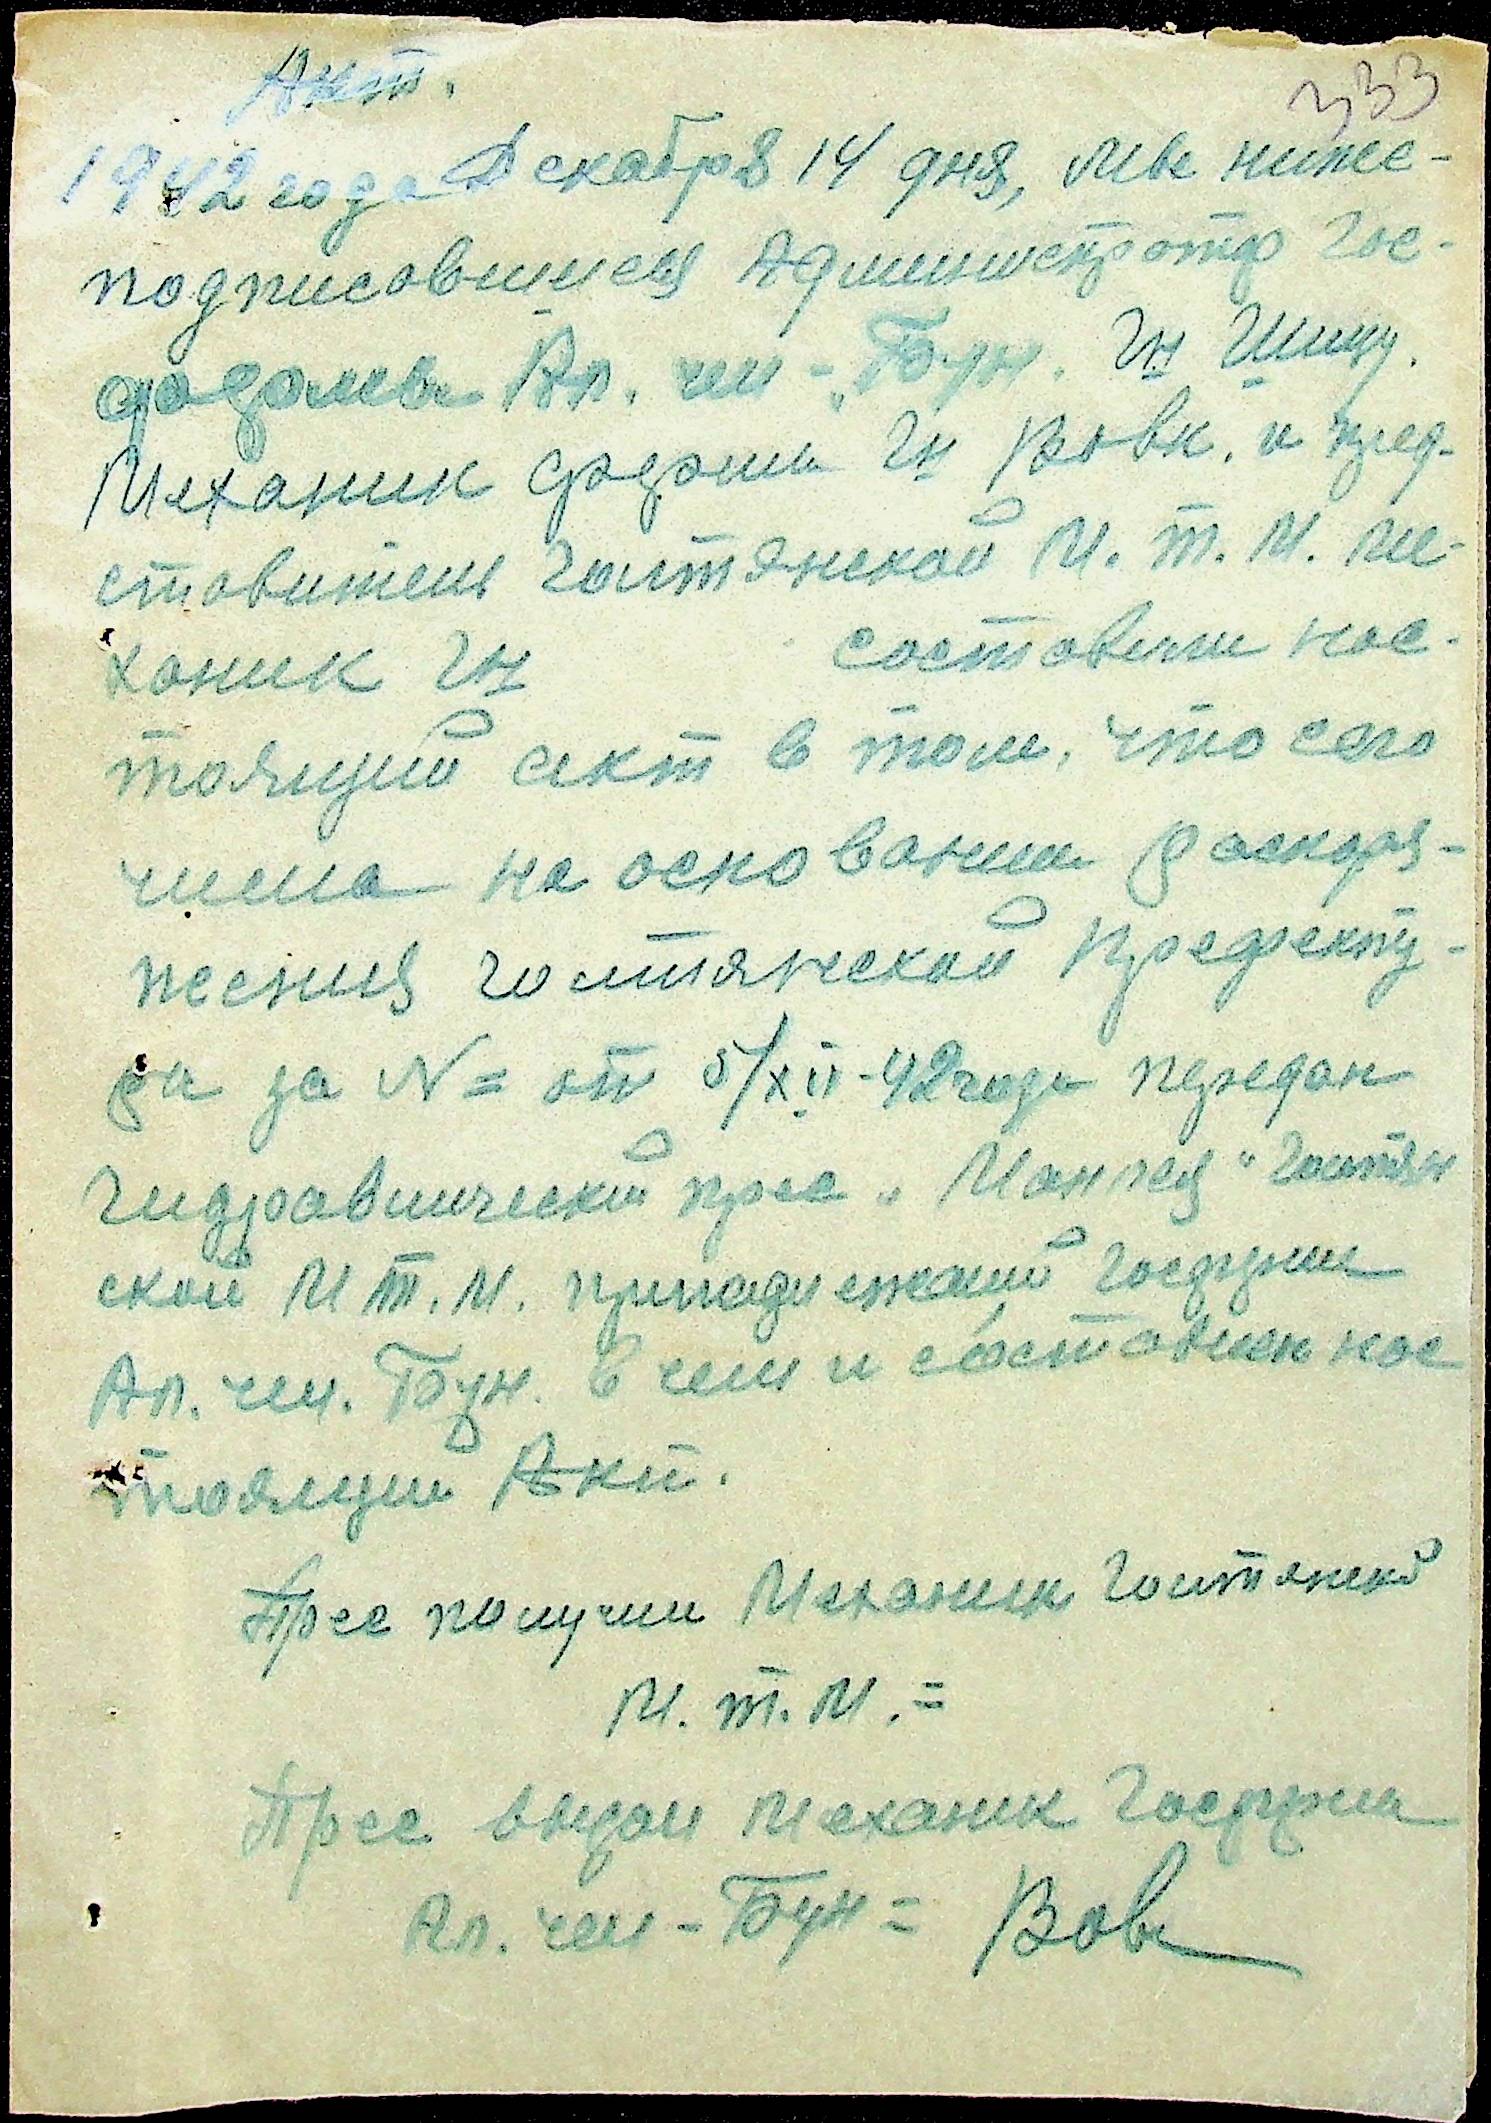 333
Акт.
1942 года Декабря 14 дня, мы ниже-
подписовшиеся Администротор Гос-
Ал. чел - Бун. Гн Шищ.
Механик фермы Гн Вовк. и пред-
стовитель Голтянской М. Т. М. ме-
ханик Гн состовили нас-
тоящий акт в том, что сего
числа на основании распоря-
жения Голтянской Префекту-
ра за N= от 5/XII-42 года передан
Гидравлический прес „Мангея" Голтян
ской М Т. М. принадлежаший Госферми
Ал. чел. Бун. в чем и состовлен нас
тоящии Акт.
Прес получил Механик Голтянской
М. Т. М. =
Прес выдал механик Госферми
Ал. чел - Бун = Вовк